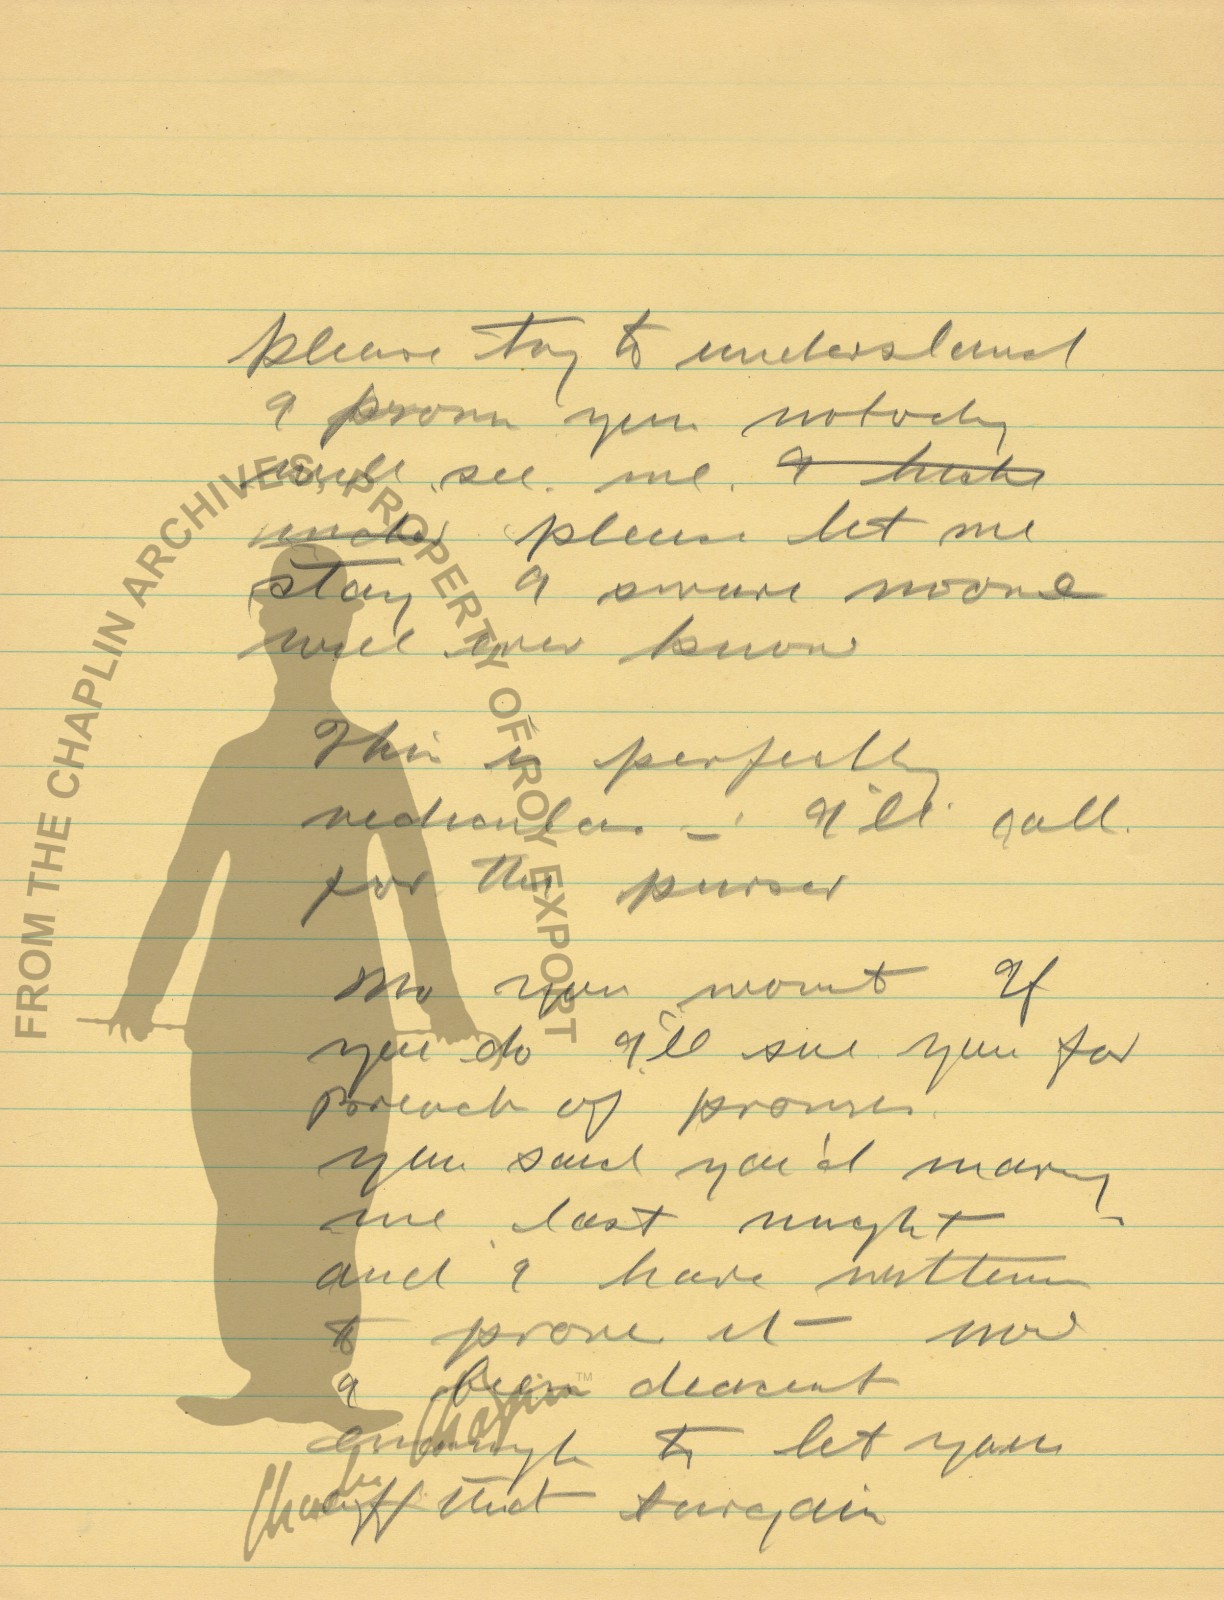 please try to understand
I promise you nobody
will see me. I
under please let me
stay I sware noone
will ever know
This is perfectly
rediculous — I'll call
for the purser
No you wont If
you do I'll sue you for
Breach of promise.
you said you'd marry
me last nught —
and I have written
to prove it — now
I been deacent
enough to let you
off that bargain
FROM THE CHAPLIN ARCHIVES, PROPERTY OF ROY EXPORT
Charlie Chaplin TM